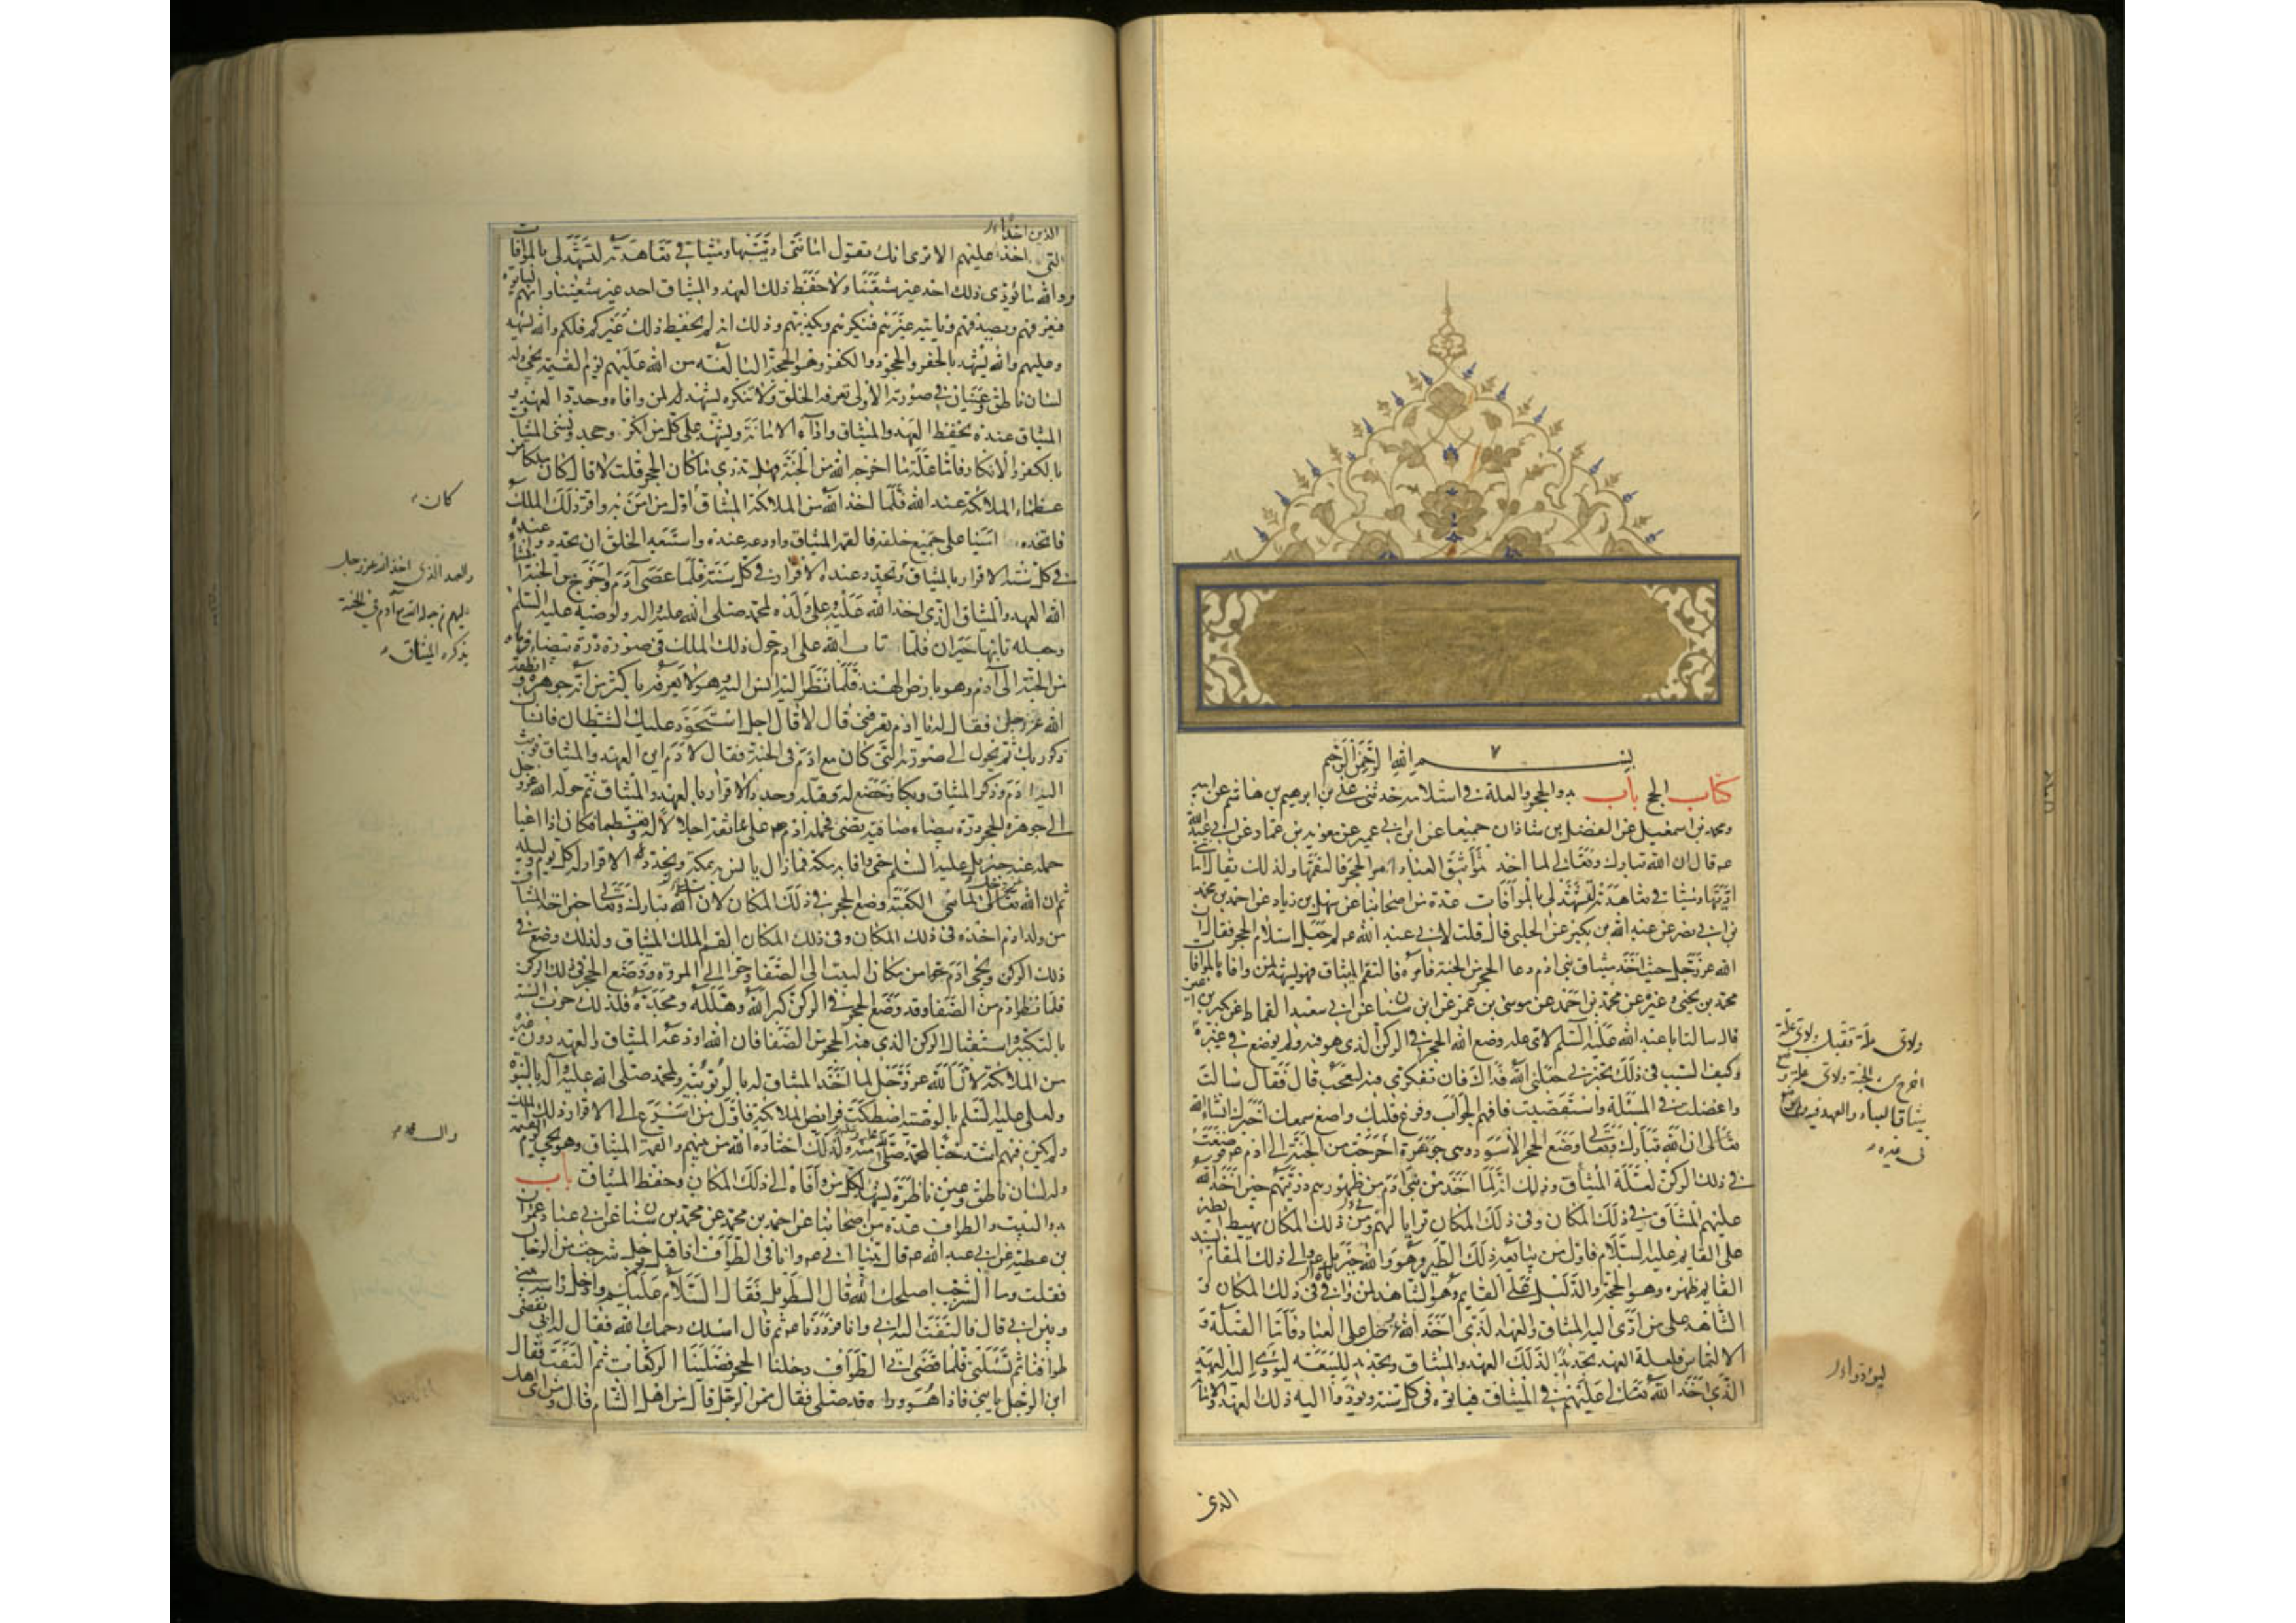 بسم الله الرحمن الرحيم
كتاب الحج باب بدو الحجر والعلة في استلامه حدثني علي بن ابرهيم بن هاشم عن ابيه
ومحمد بن اسمعيل عن الفضل بن شاذان جميعا عن ابن ابي عمير عن معوية بن عمار عن ابي عبد الله
عه قال ان الله تبارك وتعالى لما اخذ مواثيق العباد امر الحجر فالتقمها ولذلك يقال امانتي
اديتها وميثاقي تعاهدته لتشهد لي بالموافات عدة من اصحابنا عن سهل بن زياد عن احمد بن محمد
بن ابي نصر عن عبد الله بن بكير عن الحلبي قال قلت لابي عبد الله عه لم جعل استلام الحجر فقال ان
الله عز وجل حيث اخذ ميثاق بني ادم دعا الحجر من الجنة فامره فالتقم الميثاق فهو يشهد لمن وافاه بالموافاة
محمد بن يحيى وغيره عن محمد بن احمد عن موسى بن عمر عن ابن سنان عن ابي سعيد القماط عن بكير بن اعين
قال سالت ابا عبد الله عليه السلم لاي علة وضع الله الحجر في الركن الذي هو فيه ولم يوضع في غيره
وكيف السبب في ذلك تخبرني جعلني الله فداك فان تفكري فيه لعجب قال فقال سالت
واعضلت في المسئلة واستقصيت فافهم الجواب وفرغ قلبك واصغ سمعك اخبرك انشاء الله
تعالى ان الله تبارك وتعالى وضع الحجر الاسود وهي جوهرة اخرجت من الجنة الى ادم عه فوضعت
في ذلك الركن لعلة الميثاق وذلك انه لما اخذ من بني ادم من ظهورهم ذريتهم حين اخذ الله
عليهم الميثاق في ذلك المكان وفي ذلك المكان ترايا لهم ومن ذلك المكان يهبط الطير
على القايم عليه السلام فاول من يبايعه ذلك الطير وهو والله جبرئيل عه والى ذلك المقام يسند
القايم ظهره وهو الحجة والدليل على القايم وهو الشاهد لمن وافى في ذلك المكان و
الشاهد على من ادى اليه الميثاق والعهد الذي اخذ الله عز وجل على العباد فاما القبلة و
الالتماس فلعلة العهد تجديدا لذلك العهد والميثاق وتجديد للبيعة ليؤدي اليه العهد
الذي اخذ الله تعالى عليهم في الميثاق فياتوه في كل سنة ويؤدوا اليه ذلك العهد والامانة
ولاي علة تقبل ولاي علة
اخرج من الجنة ولاي علة وضع
ميثاق العباد والعهد فيه ولم يوضع
في غيره
ليؤدوا
الذين
الذين اخذا
التي اخذا عليهم الا ترى انك تقول امانتي اديتها وميثاقي تعاهدته لتشهد لي بالموافات
ووالله ما يؤدي ذلك احد غير شيعتنا ولا حفظ ذلك العهد والميثاق احد غير شيعتنا وانهم لياتوه
فيعرفهم ويصدقهم وياتيه غيرهم فينكرهم ويكذبهم وذلك انه لم يحفظ ذلك غيركم فلكم والله يشهد
وعليهم والله يشهد بالخفر والجحود والكفر وهو الحجة البالغة من الله عليهم يوم القيمة يجئ وله
لسان ناطق وعينان في صورته الاولى تعرفه الخلق ولا تنكره يشهد لمن وافاه وجدد العهد و
الميثاق عنده بحفظ العهد والميثاق واداء الامانة ويشهد على كل من انكر وجحد ونسي الميثاق
بالكفر والانكار فاما علة ما اخرجه الله من الجنة فهل تدري ما كان الحجر قلت لا قال كان ملكا من
عظماء الملائكة عند الله فلما اخذ الله من الملائكة الميثاق اول من امن به واقر ذلك الملك
فاتخذه امينا على جميع خلقه فالقمه الميثاق واودعه عنده واستعبد الخلق ان يجددوا عنده
في كل سنة الاقرار بالميثاق فلما عصى آدم واخرج من الجنة انساه
الله العهد والميثاق الذي اخذ الله عليه وعلى ولده لمحمد صلى الله عليه واله ولوصيه عليه السلم
وجعله تايها حيران فلما تاب الله على ادم حول ذلك الملك في صورة درة بيضاء فرماه
من الجنة الى آدم وهو بارض الهند فلما نظر اليه انس اليه وهو لا يعرفه باكثر من انه جوهرة وانطقه
الله عز وجل فقال له يا ادم تعرفني قال لا قال اجل استحوذ عليك الشيطان فانساك
ذكر ربك ثم تحول الى صورته التي كان مع ادم في الجنة فقال لادم اين العهد والميثاق فوثب
اليه ادم وذكر الميثاق وبكا وخضع له وقبله وجدد الاقرار بالعهد والميثاق ثم حوله الله عز وجل
الى جوهرة الحجر درة بيضاء صافية تضئ فحمله ادم عه على عاتقه اجلالا له وتعظيما فكان اذا اعيا
حمله عنه جبرئيل عليه السلم حتى وافا به مكة فما زال يانس به بمكة ويجدد الاقرار له كل يوم وليلة
ثم ان الله عز وجل لما بنى الكعبة وضع الحجر في ذلك المكان لان الله تبارك وتعالى حين اخذ الميثاق
من ولد ادم اخذه في ذلك المكان وفي ذلك المكان القم الملك الميثاق ولذلك وضع في
ذلك الركن ونحى ادم عه من مكان البيت الى الصفا وحوا الى المروة ووضع الحجر في ذلك الركن
فلما نظر ادم من الصفا وقد وضع الحجر في الركن كبر الله وهلله ومجده فلذلك جرت السنة
بالتكبير واستقبال الركن الذي فيه الحجر من الصفا فان الله اودعه الميثاق والعهد دون غيره
من الملائكة لان الله عز وجل لما اخذ الميثاق له بالربوبية ولمحمد صلى الله عليه وآله بالنبوة
ولعلي عليه السلم بالوصية اصطكت فرائص الملائكة فاول من اسرع الى الاقرار ذلك الملك
ولم يكن فيهم اشد حبا لمحمد منه ولذلك اختاره الله من بينهم والقمه الميثاق وهو يجئ يوم القيمة
وله لسان ناطق وعين ناظرة يشهد لكل من وافاه الى ذلك المكان وحفظ الميثاق باب
بدو البيت والطواف عدة من اصحابنا عن احمد بن محمد عن محمد بن سنان عن ابي عباد عمران
بن عطية عن ابي عبد الله عه قال بينا ابي عه وانا في الطواف اذ اقبل رجل شرجب من الرجال
فقلت وما الشرجب اصلحك الله قال الطويل فقال السلام عليكم وادخل راسه بيني
وبين ابي قال فالتفت اليه ابي وانا فرددنا عه ثم قال اسئلك رحمك الله فقال له ابي نقضي
طوافنا ثم تسئلني فلما قضى ابي الطواف دخلنا الحجر فصلينا الركعات ثم التفت فقال
اين الرجل يا بني فاذا هو وراءه قد صلى فقال ممن الرجل قال من اهل الشام قال ومن اي اهل
كان
والعهد الذي اخذ الله عز وجل
عليهم
يذكره الميثاق
وال محمد